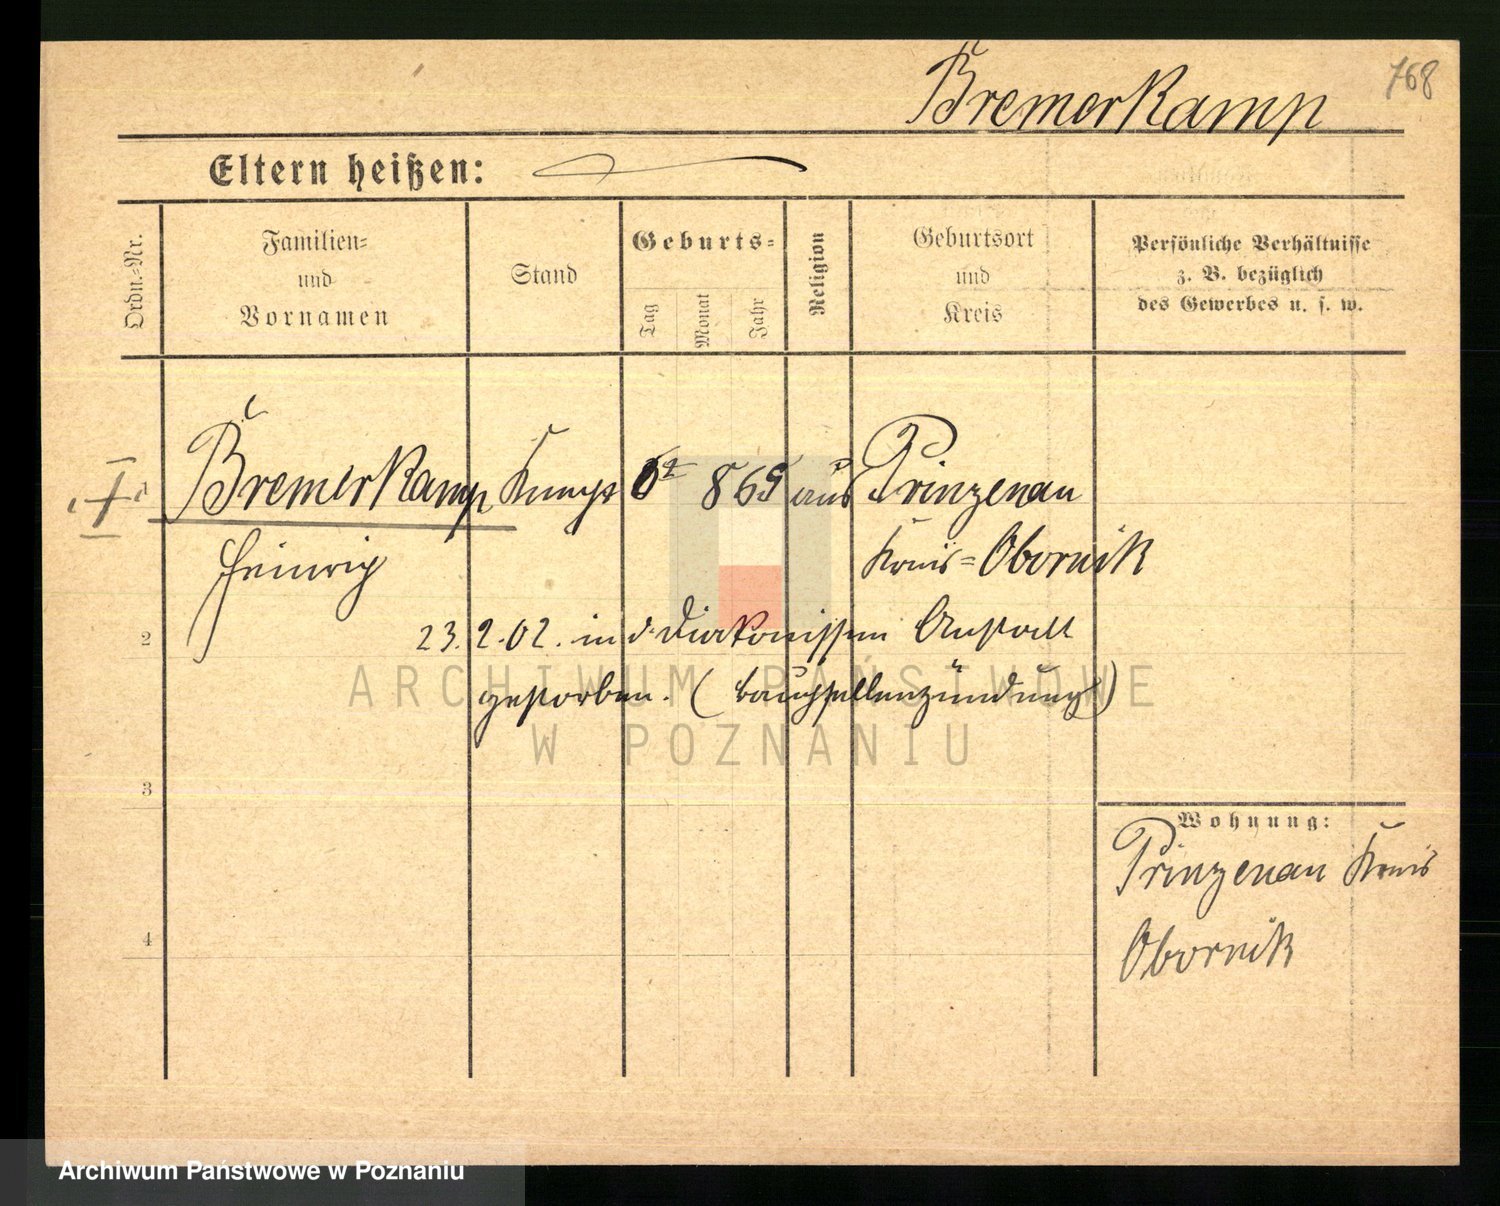 768
Bremerkamp
Eltern heißen:
Ordn.-Nr.
Familien-
und
Vornamen
Stand
Geburts-
Tag
Monat
Jahr
Religion
Geburtsort
und
Kreis
Persönliche Verhältnisse
z. B. bezüglich
des Gewerbes u. s. w.
Bremerkamp Knecht 869 aus Prinzenau
Heinrich Kreis-Obornik
2 23.2.02. in d. Diakonissen Anstalt
gestorben. (bauchfellenzündung)
ARCHIWUM PAŃSTWOWE
W POZNANIU
3
Wohnung:
Prinzenau Kreis
4 Obornik
Archiwum Państwowe w Poznaniu